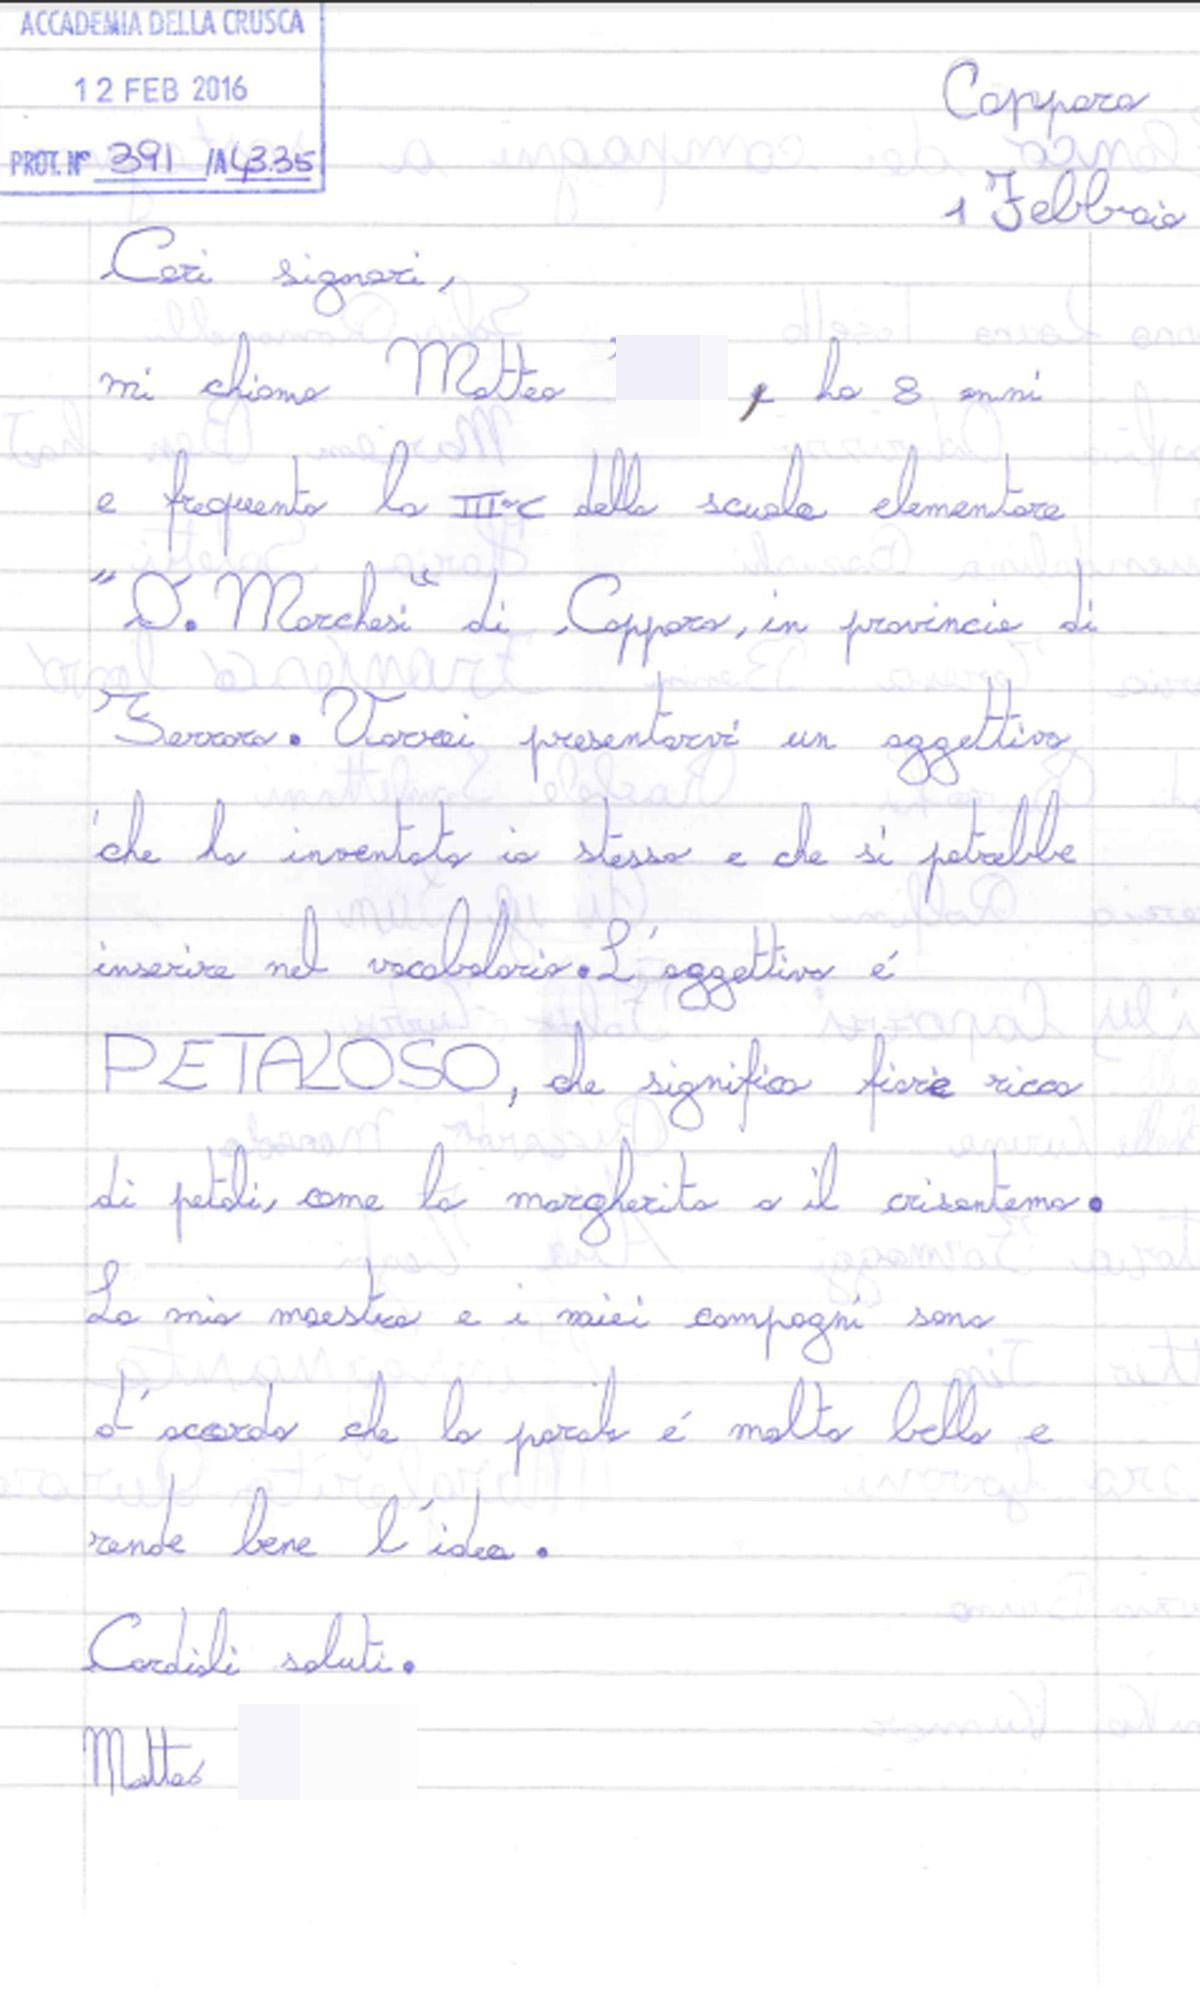 ACCADEMIA DELLA CRUSCA
12 FEB 2016
PROT. N° 391 /A 43.35
Copparo
1 Febbraio
Cari signori,
mi chiamo Matteo , ho 8 anni
e frequento la III^C della scuola elementare
"O. Marchesi" di Copparo, in provincia di
Ferrara. Vorrei presentarvi un aggettivo
che ho inventato io stesso e che si potrebbe
inserire nel vocabolario. L'aggettivo é
PETALOSO, che significa fiore ricco
di petali, come la margherita o il crisantemo.
La mia maestra e i miei compagni sono
d'accordo che la parola é molto bella e
rende bene l'idea.
Cordiali saluti.
Matteo